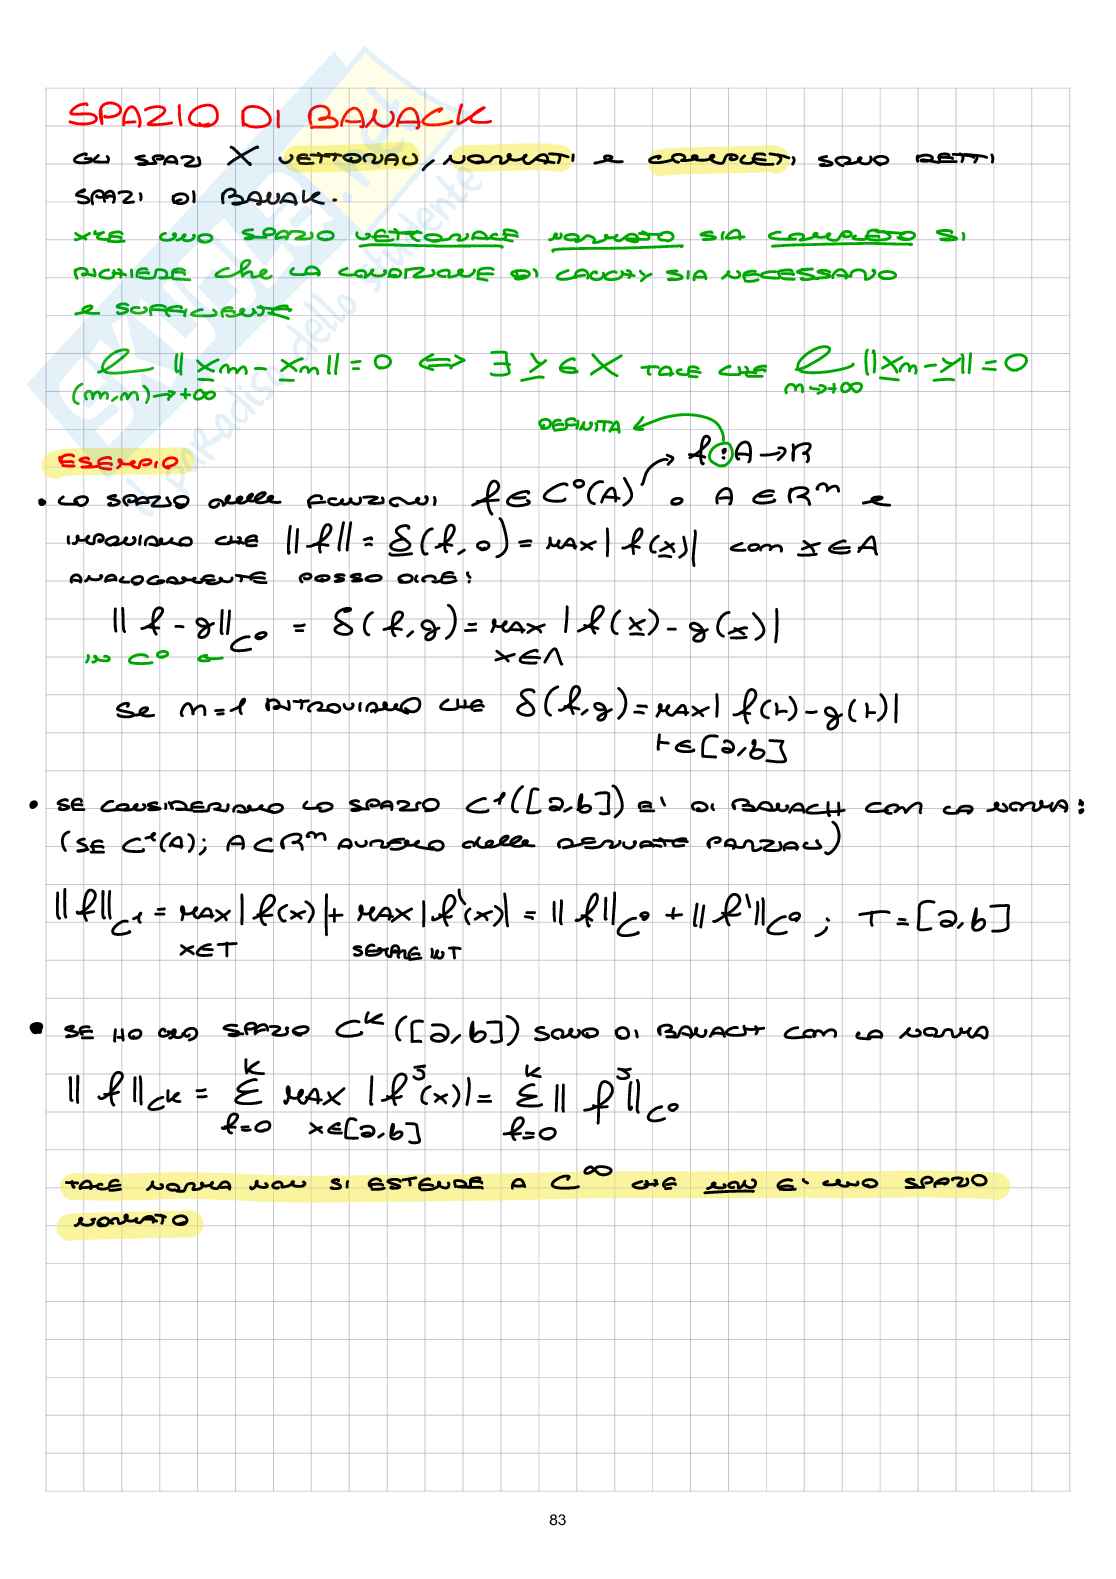 SPAZIO DI BANACK
GLI SPAZI X VETTORIALI, NORMATI e COMPLETI SONO DETTI
SPAZI DI BANAK.
XKE UNO SPAZIO VETTORIALE NORMATO SIA COMPLETO SI
RICHIEDE che LA CONDIZIONE DI CAUCHY SIA NECESSARIO
e SUFFICIENTE
ℓ ||xm - xn|| = 0 ⟺ ∃ y ∈ X TALE CHE ℓ ||xn - y|| = 0
(m,n) → +∞ n → +∞
DEFINITA
f : A → R
ESEMPIO
• LO SPAZIO delle FUNZIONI f ∈ C°(A) o A ∈ Rⁿ e
IMPONIAMO CHE ||f|| = δ(f, 0) = MAX |f(x)| con x ∈ A
ANALOGAMENTE POSSO DIRE:
||f - g||C° = δ(f, g) = MAX |f(x) - g(x)|
IN C° x ∈ A
Se n = 1 RITROVIAMO CHE δ(f, g) = MAX |f(t) - g(t)|
t ∈ [a, b]
• SE CONSIDERIAMO LO SPAZIO C¹([a, b]) E' DI BANACH CON LA NORMA:
(SE C¹(A); A ⊂ Rⁿ AVREMO delle DERIVATE PARZIALI)
||f||C¹ = MAX |f(x)| + MAX |f'(x)| = ||f||C° + ||f'||C° ; T = [a, b]
x ∈ T SEMPRE IN T
• SE HO UNO SPAZIO Cᴷ([a, b]) SONO DI BANACH CON LA NORMA
K J K J
||f||CK = Σ MAX |f (x)| = Σ || f ||C°
f=0 x ∈ [a, b] f=0
TALE NORMA NON SI ESTENDE A C∞ CHE NON E' UNO SPAZIO
NORMATO
83